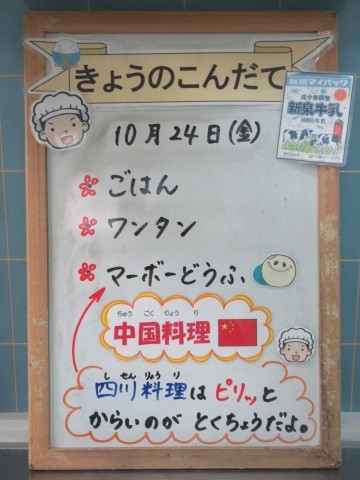 きょうのこんだて
10月24日(金)
ごはん
ワンタン
マーボーどうふ
ちゅうごくりょうり
中国料理
しせんりょうり
四川料理はピリッと
からいのがとくちょうだよ。
新泉マイパック
成分無調整
新泉牛乳